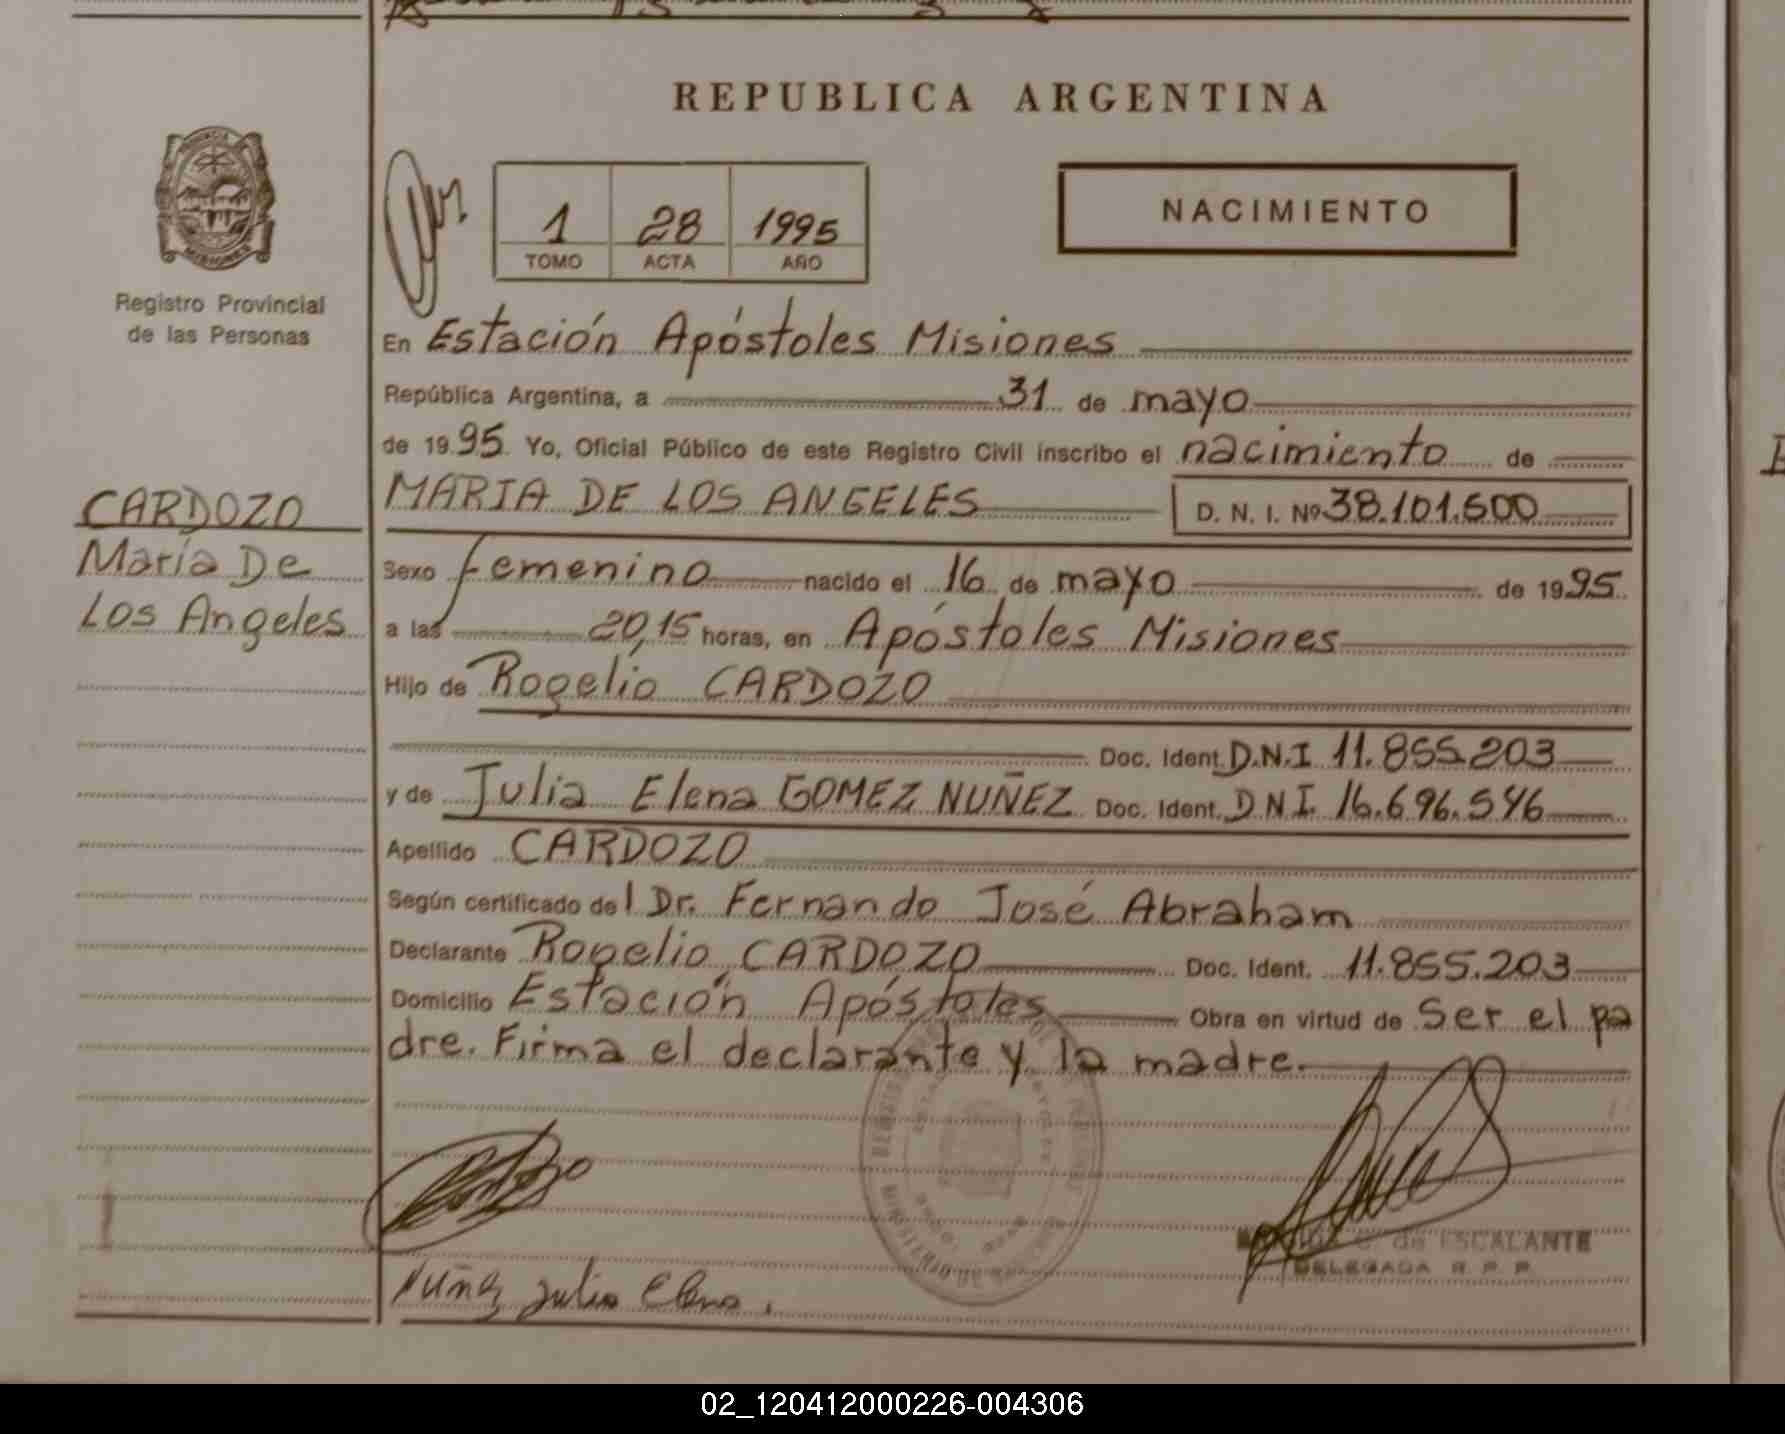 REPUBLICA ARGENTINA
NACIMIENTO
1 28 1995
TOMO ACTA AÑO
Registro Provincial
de las Personas
CARDOZO
María De
Los Angeles
En Estación Apóstoles Misiones
República Argentina, a 31 de mayo
de 19 95 Yo, Oficial Público de este Registro Civil inscribo el nacimiento de
MARIA DE LOS ANGELES D. N. I. Nº 38.101.500
Sexo femenino nacido el 16 de mayo de 19 95
a las 20,15 horas, en Apóstoles Misiones
Hijo de Rogelio CARDOZO
Doc. Ident. D.N.I 11.855.203
y de Julia Elena GOMEZ NUÑEZ Doc. Ident. D.N.I. 16.696.546
Apellido CARDOZO
Según certificado del Dr. Fernando José Abraham
Declarante Rogelio CARDOZO Doc. Ident. 11.855.203
Domicilio Estación Apóstoles Obra en virtud de Ser el pa
dre. Firma el declarante y la madre.
de ESCALANTE
DELEGADA R. P. P.
Nuñez Julia Elena.
02_120412000226-004306